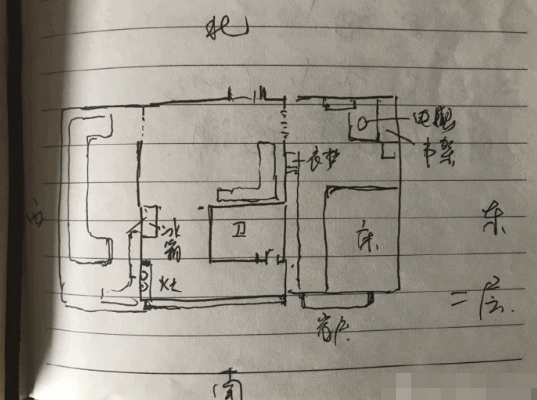 北
电脑
书架
衣柜
西
冰箱
卫
床
东
灶
二层
窗户
南